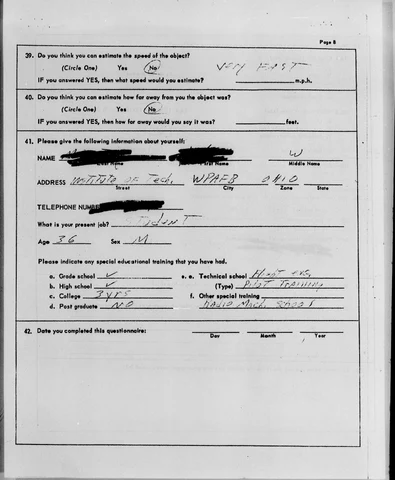 Page 8
39. Do you think you can estimate the speed of the object?
(Circle One) Yes No VERY FAST
IF you answered YES, then what speed would you estimate? m.p.h.
40. Do you think you can estimate how far away from you the object was?
(Circle One) Yes No
IF you answered YES, then how far away would you say it was? feet.
41. Please give the following information about yourself:
NAME W
Last Name First Name Middle Name
ADDRESS INSTITUTE OF Tech. WPAFB OHIO
Street City Zone State
TELEPHONE NUMBER
What is your present job? STUDENT
Age 36 Sex M
Please indicate any special educational training that you have had.
a. Grade school ✓ e. e. Technical school
b. High school ✓ (Type) PILOT TRAINING
c. College 3 YRS f. Other special training
d. Post graduate NO RADIO Mech. School
42. Date you completed this questionnaire:
Day Month Year